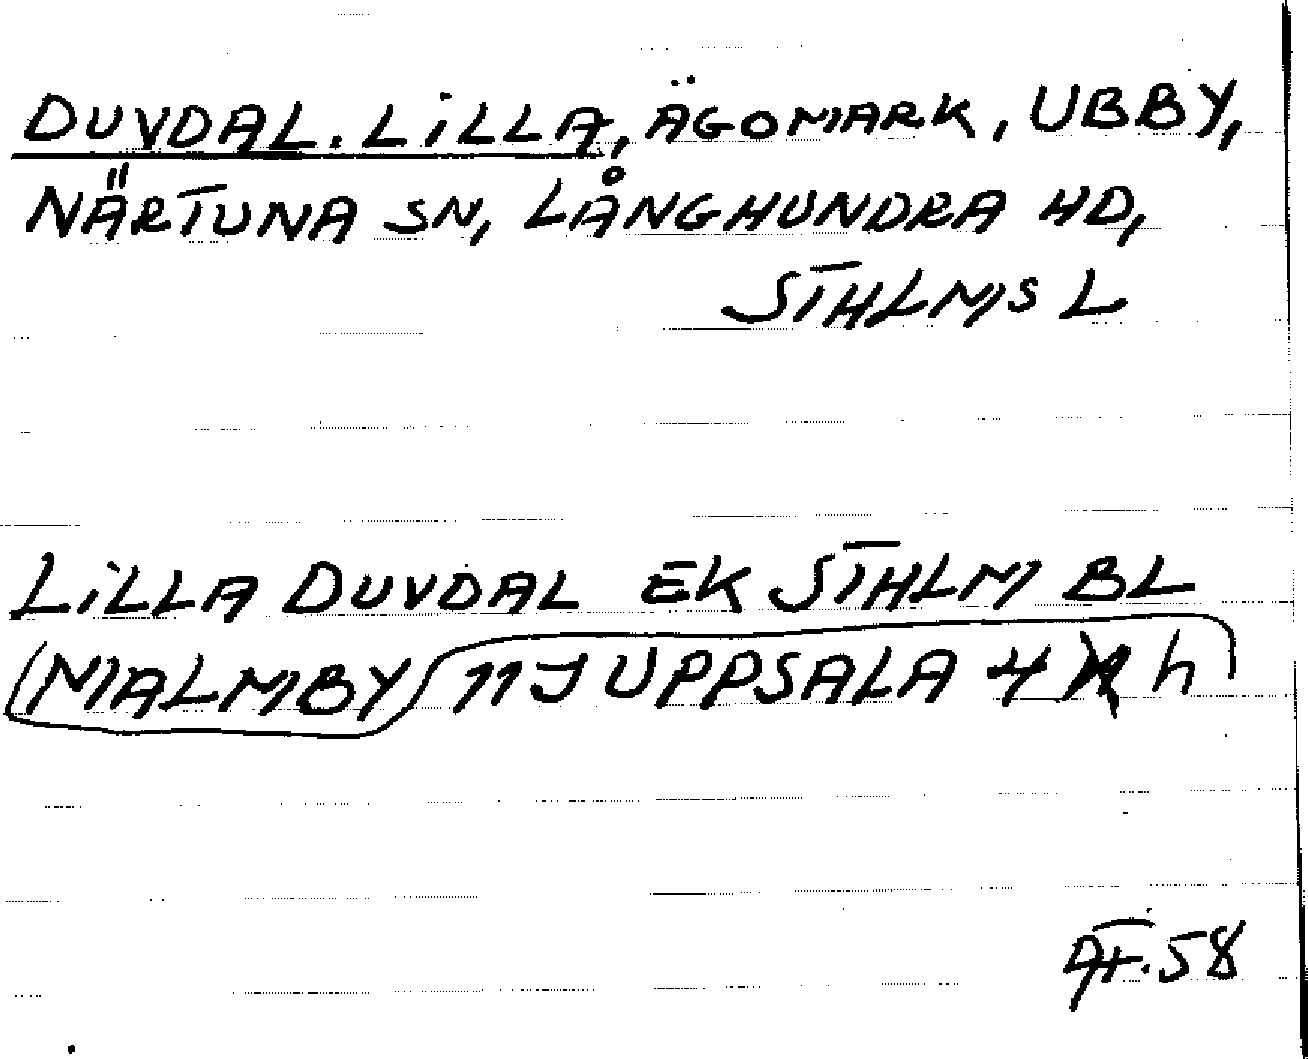 DUVDAL. LILLA, ÄGOMARK, UBBY,
NÄRTUNA SN, LÅNGHUNDRA HD,
STHLMS L
LILLA DUVDAL EK STHLM BL
(MALMBY) 11 J UPPSALA 4 h
58